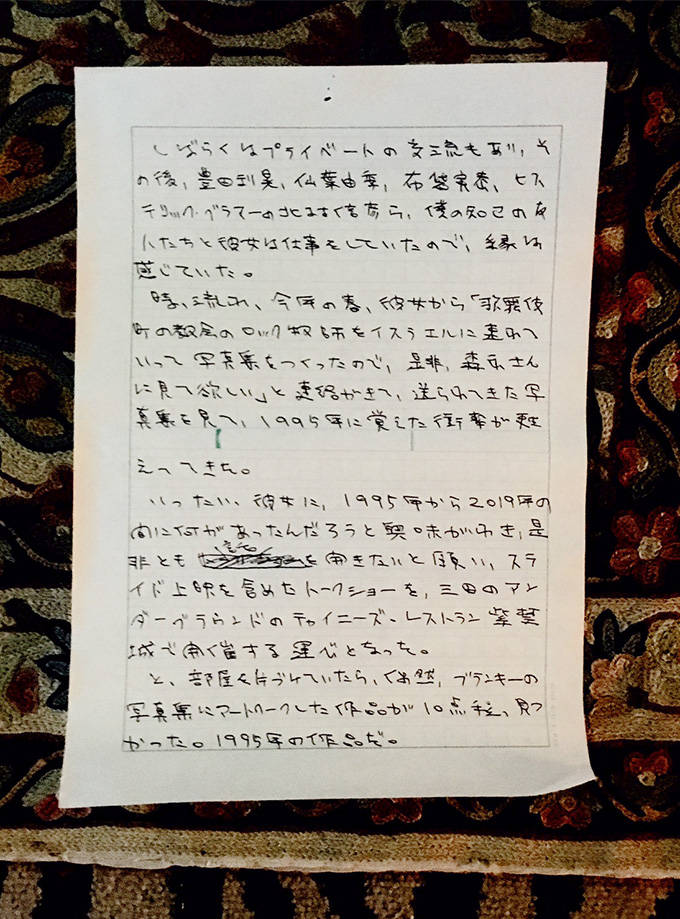 しばらくはプライベートの交流もあり、そ
の後、豊田利晃、仙葉由季、布袋寅泰、ヒス
テリック・グラマーの北村信彦ら、僕の知己の友
人たちと彼女は仕事をしていたので、縁は
感じていた。
時は流れ、今年の春、彼女から「歌舞伎
町の教会のロック牧師をイスラエルに連れて
いって写真集をつくったので、是非、森永さん
に見て欲しい」と連絡がきて、送られてきた写
真集を見て、1995年に覚えた衝撃が甦
えってきた。
いったい、彼女に、1995年から2019年の
間に何があったんだろうと興味がわき、是
非とも を聞きたいと願い、スラ
イド上映を含めたトークショーを、三田のアン
ダーグラウンドのチャイニーズ・レストラン 紫禁
城で開催する運びとなった。
と、部屋を片づけていたら、偶然、ブランキーの
写真集にアートワークした作品が10点程、見つ
かった。1995年の作品だ。